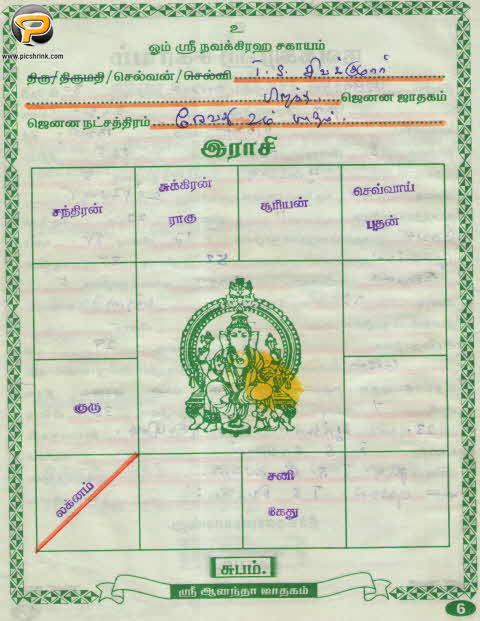 P
www.picshrink.com
உ
ஓம் ஸ்ரீ நவக்கிரஹ சகாயம்
திரு/திருமதி/செல்வன்/செல்வி T. S. சிவக்குமார்
பிறந்த ஜெனன ஜாதகம்
ஜெனன நட்சத்திரம் ரேவதி 2ம் பாதம்
இராசி
சந்திரன்
சுக்கிரன்
ராகு
சூரியன்
செவ்வாய்
புதன்
குரு
லக்னம்
சனி
கேது
சுபம்.
ஸ்ரீ ஆனந்தா ஜாதகம்
6